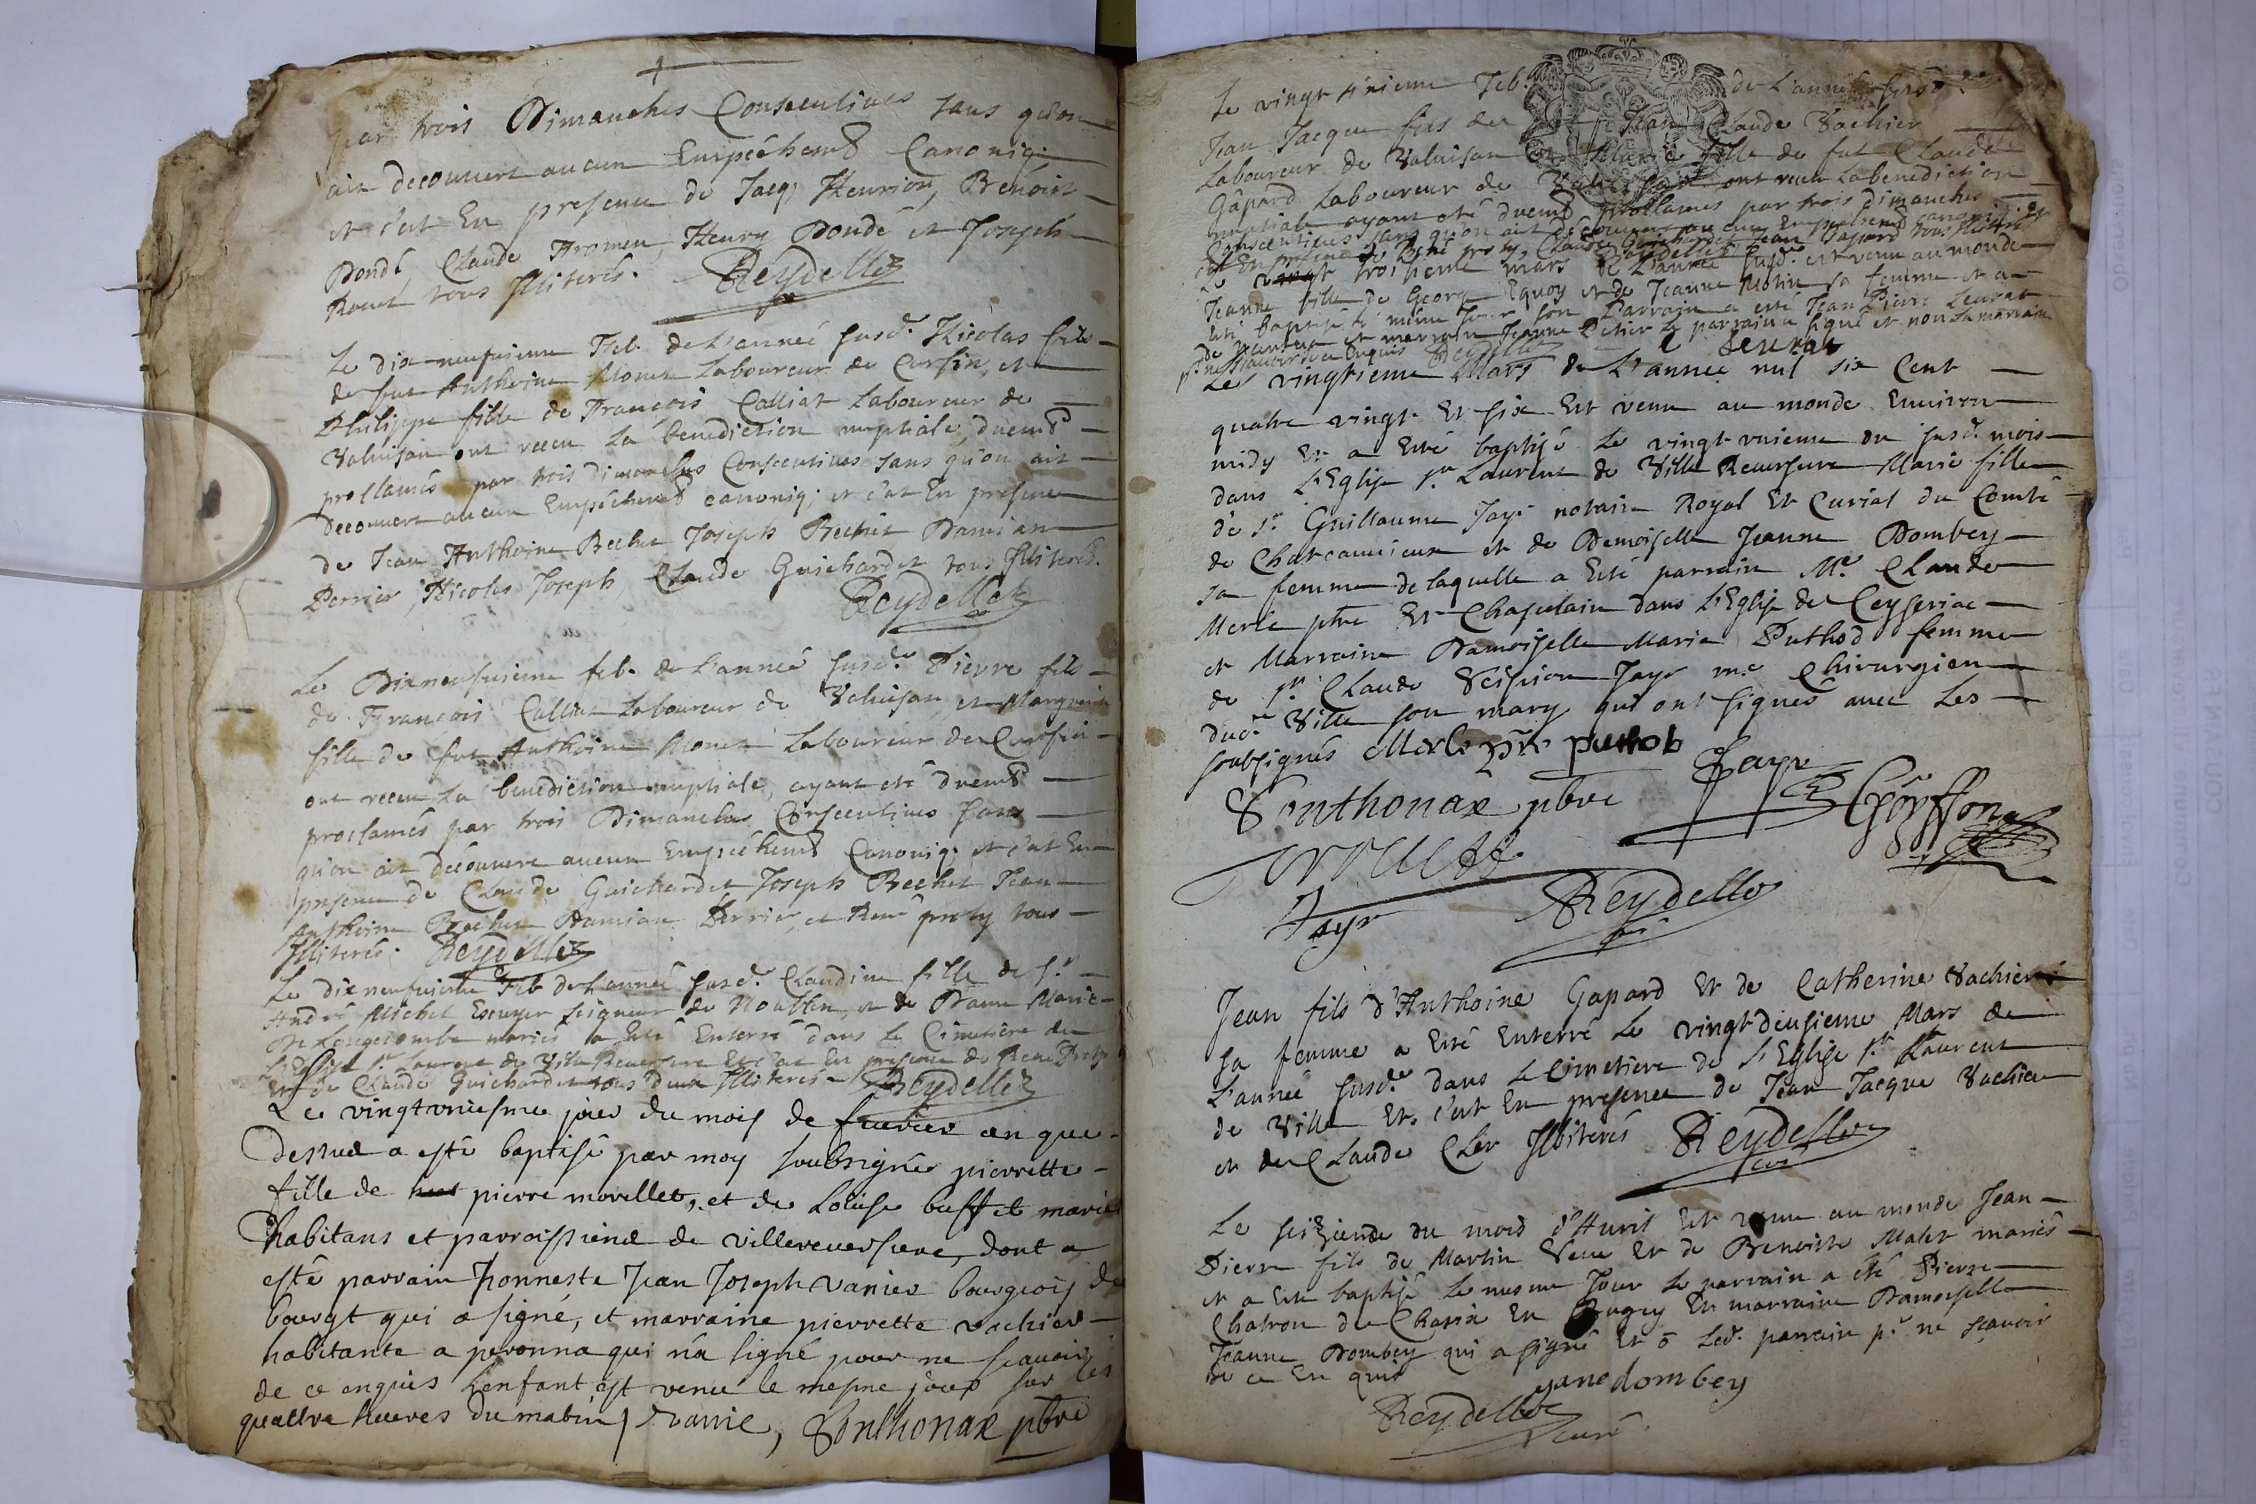 par trois Dimanches Consecutives sans qu'on
ait decouvert aucun Empéchemt Canoniq.
et c'est En presence de Jacq. Henrion, Benoist
Dondé, Claude Fromen, Henry Dondé et Joseph
tous Illiterés. Reydellet
Le dix neufuieme Feb. de L'année susd. Nicolas fils
de fut Anthoine Monet Laboureur de Cursin, et
Philippe fille de François Calliat Laboureur de
Valuisan ont receu La benediction nuptiale, duemt
proclamés par trois dimanches Consecutives sans qu'on ait
decouvert aucun Empéchemt canoniq. et c'est En presence
de Jean Anthoine Bechet Joseph Bechet Damian
Perrier, Nicolas Joseph, Claude Guichardet tous Illiterés.
Reydellet
Le Dixneufuieme feb. de L'année susd. Pierre fils
de François Calliat Laboureur de Valuisan, et Marguerite
fille de fut Anthoine Monet Laboureur de Cursin
ont receu La benediction nuptiale, ayant eté duemt
proclamés par trois Dimanches Consecutives sans
qu'on ait découvert aucun Empéchemt Canoniq. et c'est En
presence de Claude Guichardet Joseph Bechet Jean
Anthoine Bechet Damian Perrier, et René proty tous
Illiterés. Reydellet
Le dix neufuieme Feb de L'année susd. Claudine fille de sr
André Michel Escuyer seigneur de et de Dame Marie
De Longecombe mariés a Eté Enterré dans Le Cimetiere de
L'Eglise st Laurent de Ville Reuersure Et c'est En presence de René Proty
et de Claude Guichardet tous deux Illiterés Reydellet
Le vingtvniesme jour du mois de feurier an que
dessus a esté baptisé par moy soubsigné pierrette
fille de pierre morellet, et de Loüise buffet mariés
habitans et parroissiens de villereuersure, dont a
esté parrain honneste Jean Joseph vanier bourgeois de
bourgt qui a signé, et marraine pierrette vachier
habitante a peronna qui n'a signé pour ne scauoir
de ce enquis L'enfant est venu le mesme jour sur les
quattre heures du matin, vanie, Sonthonax pbre
Le vingt sixieme Feb. de L'année susd.
Jean Jacque fils de Jean Claude Vachier
Laboureur de Valuisan et Marie fille de fut Claude
Gapard Laboureur de ont receu La benediction
nuptiale ayant eté duemt proclamés par trois dimanches
Consecutives sans qu'on ait découvert aucun Empéchemt canoniq. et
c'est En presence de René proty, Claude Guichardet Jean Gapard tous Illiterés
Le vingt troisieme mars de L'année susd. est venu au monde
Jeanne fille de George et de Jeanne Morin sa femme et a
esté baptisé le même Jour son Parrain a esté Jean Pierre Leurat
de et marraine Jeanne Perier Le parrain a signé et non La marraine
pr ne sçauoir de ce enquis Reydellet Leurat
Le vingtieme Mars de L'année mil six Cent
quatre vingt Et six Est venu au monde Enuiron
midy Et a Eté baptisé Le vingt vnieme du susd. mois
dans L'Eglise st Laurent de Ville Reuersure Marie fille
de sr Guillaume Jayr notaire Royal Et Curial du Comté
de Chateauuieux et de Demoiselle Jeanne Dombey
sa femme de laquelle a Esté parrain Mre Claude
Merle ptre Et Chapelain dans L'Eglise de Ceyseriac
et Marraine Damoiselle Marie Puthod femme
de sr Claude Scipion Jayr me Chirurgien
dud. Ville son mary qui ont signés auec Les
soubsignés Merle pre puthob Jayr
Sonthonax pbre Gorffon
Jayr Reydellet
Jean fils d'Anthoine Gapard Et de Catherine Vachier
sa femme a Esté Enterré Le vingt deusieme Mars de
L'année susd. dans Le Cimetiere de L'Eglise st Laurent
de Ville Et c'est En presence de Jean Jacque Vachier
et de Claude Cler Illiterés Reydellet
Le seizieme du mois d'Auril Est venu au monde Jean
Pierre fils de Martin Et de Benoiste Malet mariés
et a Esté baptisé Le mesme Jour Le parrain a eté Pierre
Chatron de Charix En Bugey Et marraine Damoiselle
Jeanne Dombey qui a signé Et ō Led. parrain pr ne sçauoir
de ce En quis yane dombey
Reydellet
curé